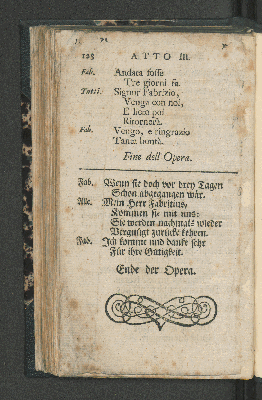 128 ATTO III.
Fab. Andata fosse
Tre giorni fa.
Tutti. Signor Fabrizio,
Venga con noi,
E lieto poi
Ritornerà.
Fab. Vengo, e ringrazio
Tanta bontà.
Fine dell Opera.
Fab. Wenn sie doch vor drey Tagen
Schon abgegangen wär.
Alle. Mein Herr Fabritius,
Kommen sie mit uns:
Sie werden nachmals wieder
Vergnügt zurücke kehren.
Fab. Ich komme und danke sehr
Für ihre Gütigkeit.
Ende der Opera.